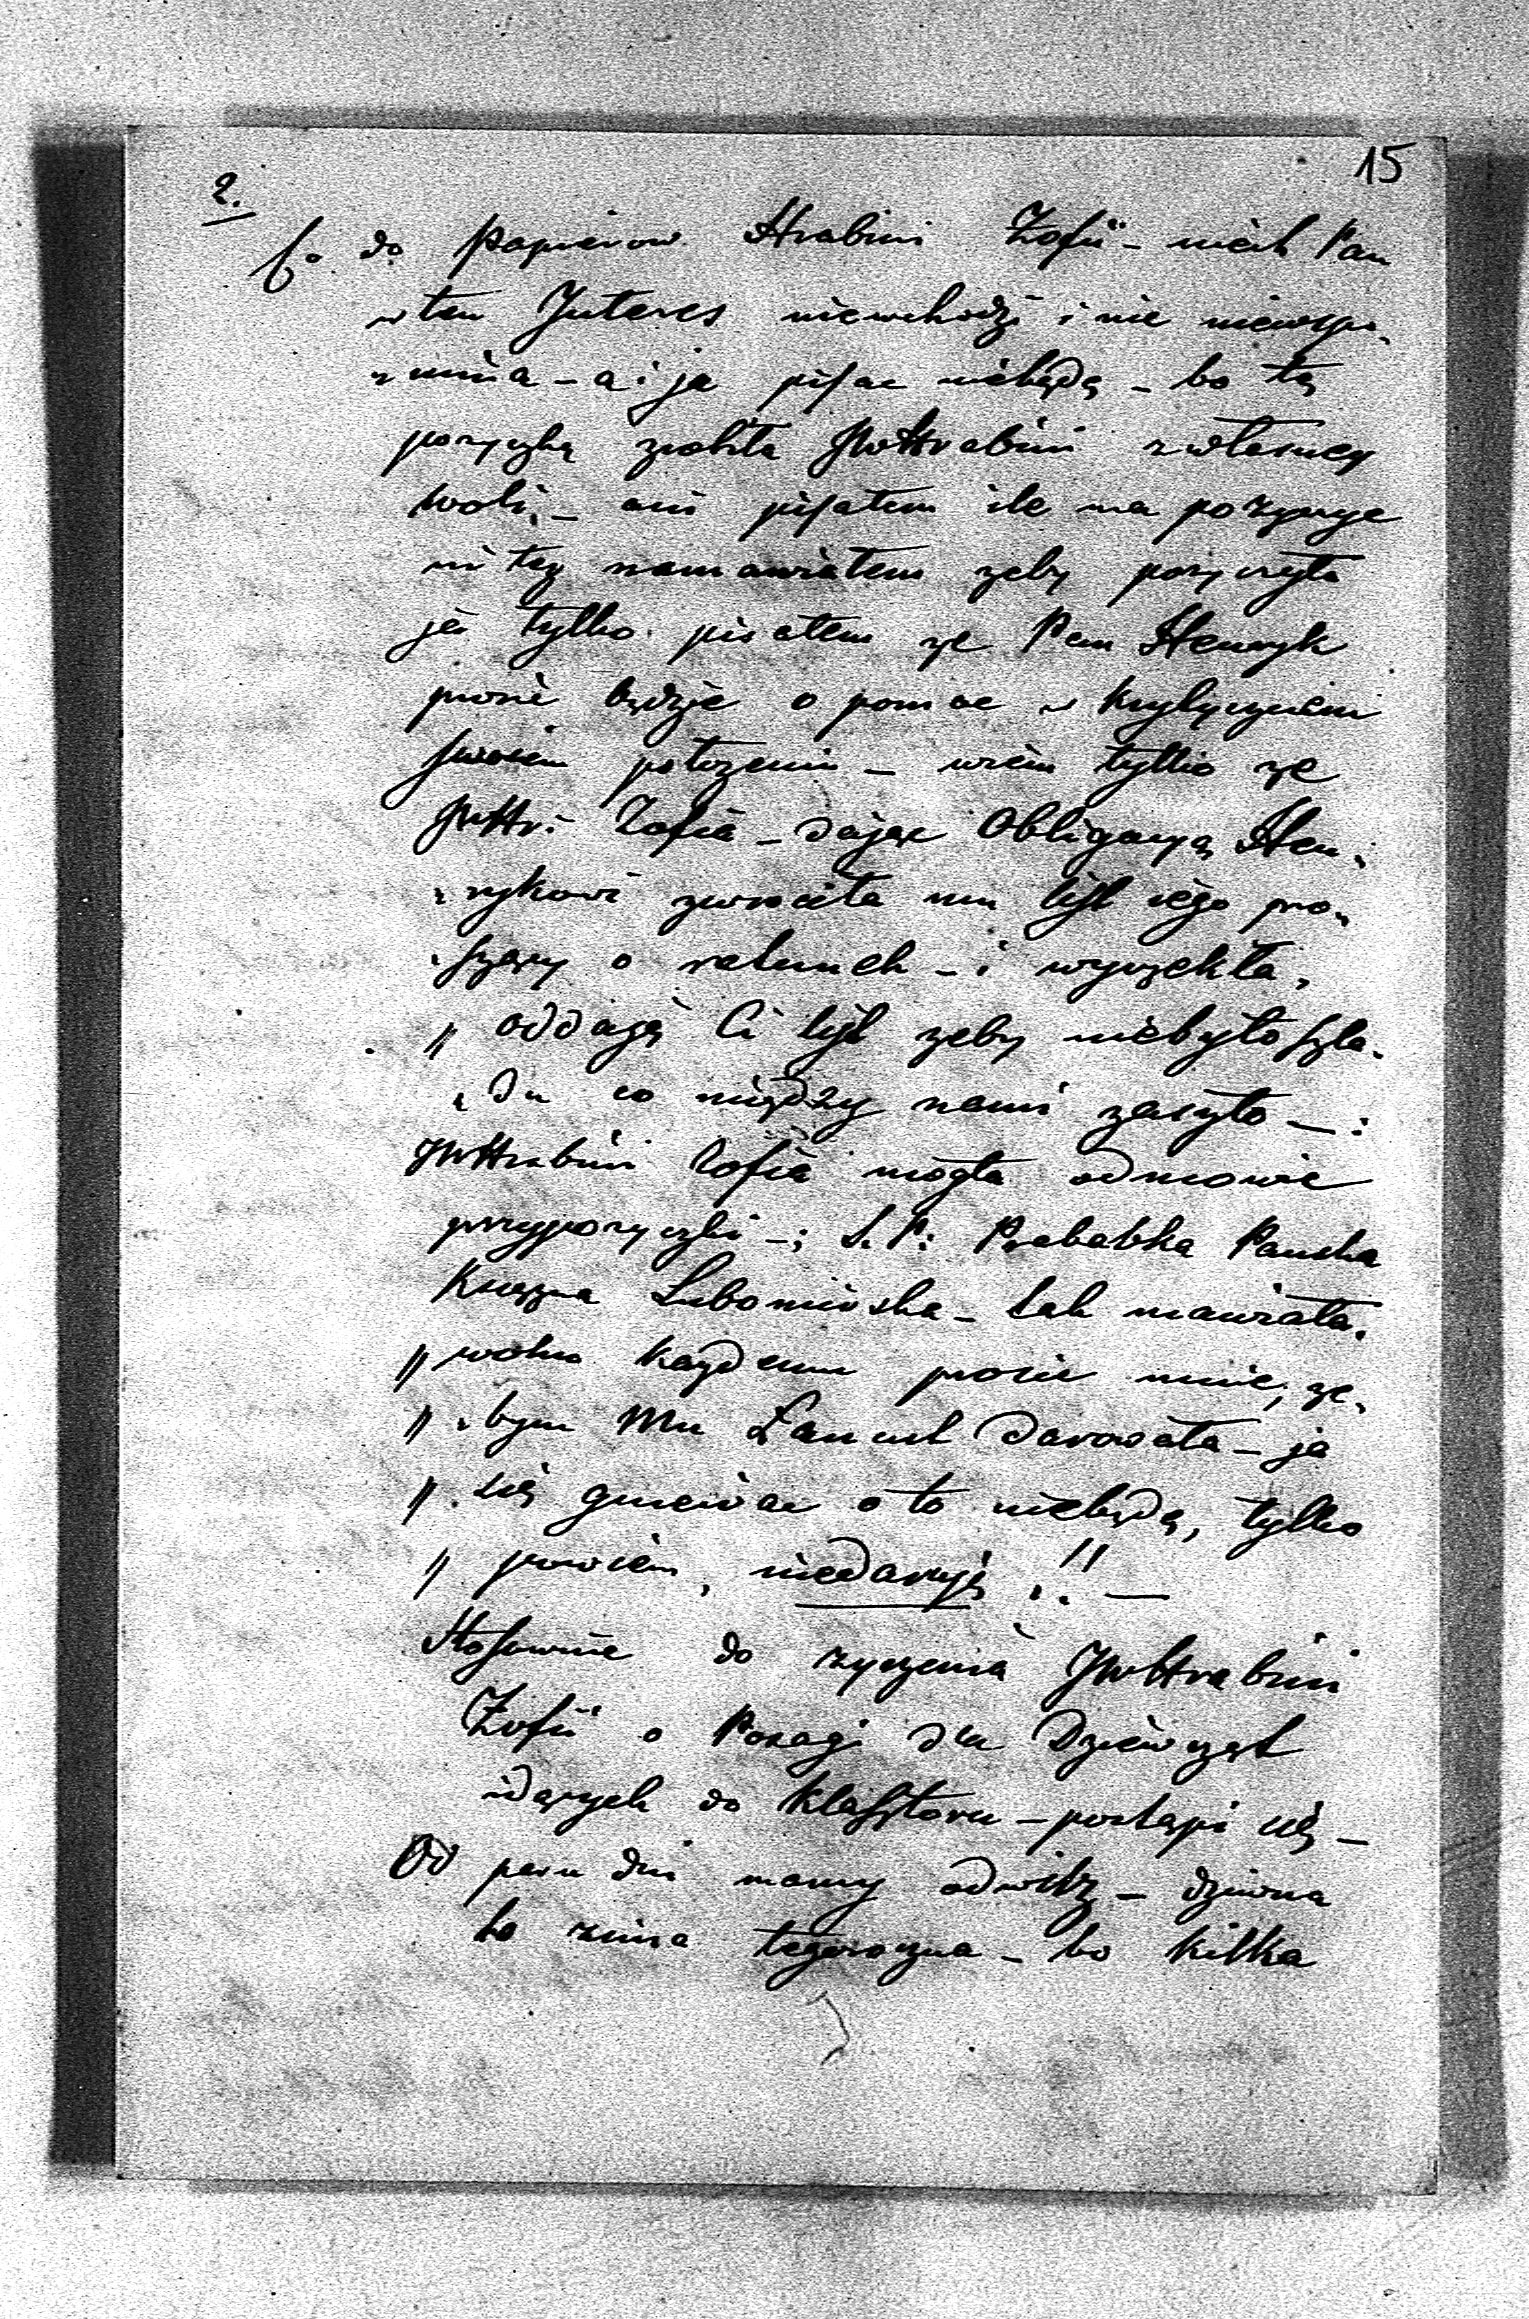 15
2.
Co do Papierow Hrabini Zofii - niech Pan
w ten Interes niewchodzi i nic niewspo„
„mina - a i ja pisac niebędę - bo tą
pozyczkę zrobiła JWHrabini z własney
woli, - ani pisałem ile ma pozyczyc
ni tez namawiałem zeby pozyczyła
ja tylko pisałem ze Pan Henryk
prosic będzie o pomoc w krytycznem
swoiem położeniu - wiem tylko ze
JWHr: Zofia - dając Obligacyą Hen„
„rykowi zwrociła mu list iego pro„
„szący o ratunek - i wyrzekła,
„ oddaię Ci list zeby niebyło szla„
„du co między nami zaszło - :
JWHrabini Zofia mogła odmowic
przy pozyczki - ; S. P: Prababka Panska
Xiężna Lubomirska - tak mawiała.
„ wolno kazdemu prosic mnie, ze„
„ „bym Mu Łancut darowała - ja
„ się gniewac o to niebędę, tylko
„ powiem, niedaruię !! —
Stosownie do zyczenia JWHrabini
Zofii o Posagi dla Dziewcząt
idących do klasztoru - postąpi się -
Od paru dni mamy odwilz - dziwna
to zima tegoroczna - bo kilka